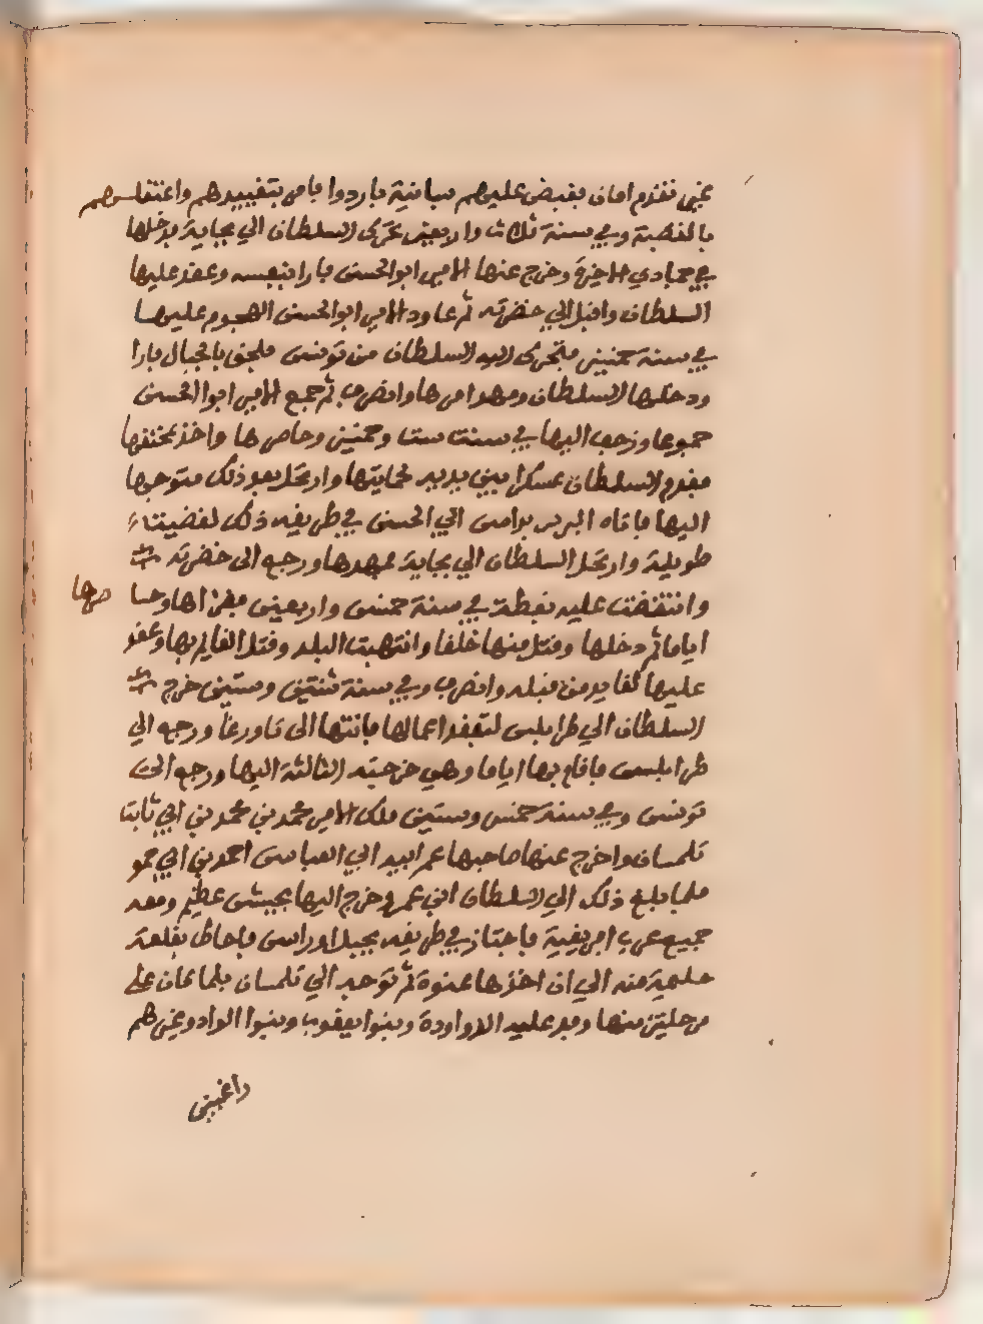 غير تقدم امان فقبض عليهم بسانية باردوا فامر بتقييدهم واعتقلهم
بالقصبة وفي سنة ثلاث واربعين تحرك السلطان الي بجاية فدخلها
في جمادي الاخرة وخرج عنها الامير ابو الحسن فارا بنفسه وعقد عليها
السلطان واقبل الي حضرته ثم عاود الامير ابو الحسن الهجوم عليها
في سنة خمسين فتحرك اليه السلطان من تونس فلحق بالجبال فارا
ودخلها السلطان ومهد امرها وانصرف ثم جمع الامير ابوا الحسن
جموعا وزحف اليها في سنت ست وخمسين وحاصرها واخذ بمخنقها
فقدم السلطان عسكرا بين يديه لحمايتها وارتحل بعد ذلك متوجها
اليها فاتاه البريد براس ابي الحسن في طريقه ذلك لقضيتة
طويلة وارتحل السلطان الي بجاية فمهدها ورجع الى حضرته
وانتقضت عليه نفطة في سنة خمس واربعين فغزاها وحا صرها
اياما ثم دخلها وقتل منها خلقا وانتهبت البلد وقتل القايم بها وعقد
عليها لقايد من قبله وانصرف وفي سنة ثنتين وستين خرج
السلطان الي طرابلس لتفقد اعمالها فانتها الى تاورغا ورجع الي
طرابلس فاقام بها اياما وهي خرجته الثالثة اليها ورجع الى
تونس وفي سنة خمس وستين ملك الامير محمد بن محمد بن ابي ثابت
تلمسان واخرج عنها صاحبها عم ابيه ابي العباس احمد بن ابي حمو
فلما بلغ ذلك الي السلطان ابي عمرو خرج اليها بجيش عظيم ومعه
جميع عرب افريقية فاجتاز في طريقه بجبل اوراس فاحاط بقلعة
حليمة منه الي ان اخذها عنوة ثم توجه الي تلمسان فلما كان على
مرحلتين منها وفد عليه الدواودة وبنوا يعقوب وبنوا الواد وغيرهم